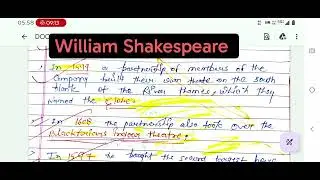 05:58
09:13
DOC
William Shakespeare
In 1599 a partnership of members of the
Company built their own theatre on the south
bank of the River Thames, which they
named the Globe.
In 1608 the partnership also took over the
Blackfriars indoor theatre.
In 1597 he bought the second largest house